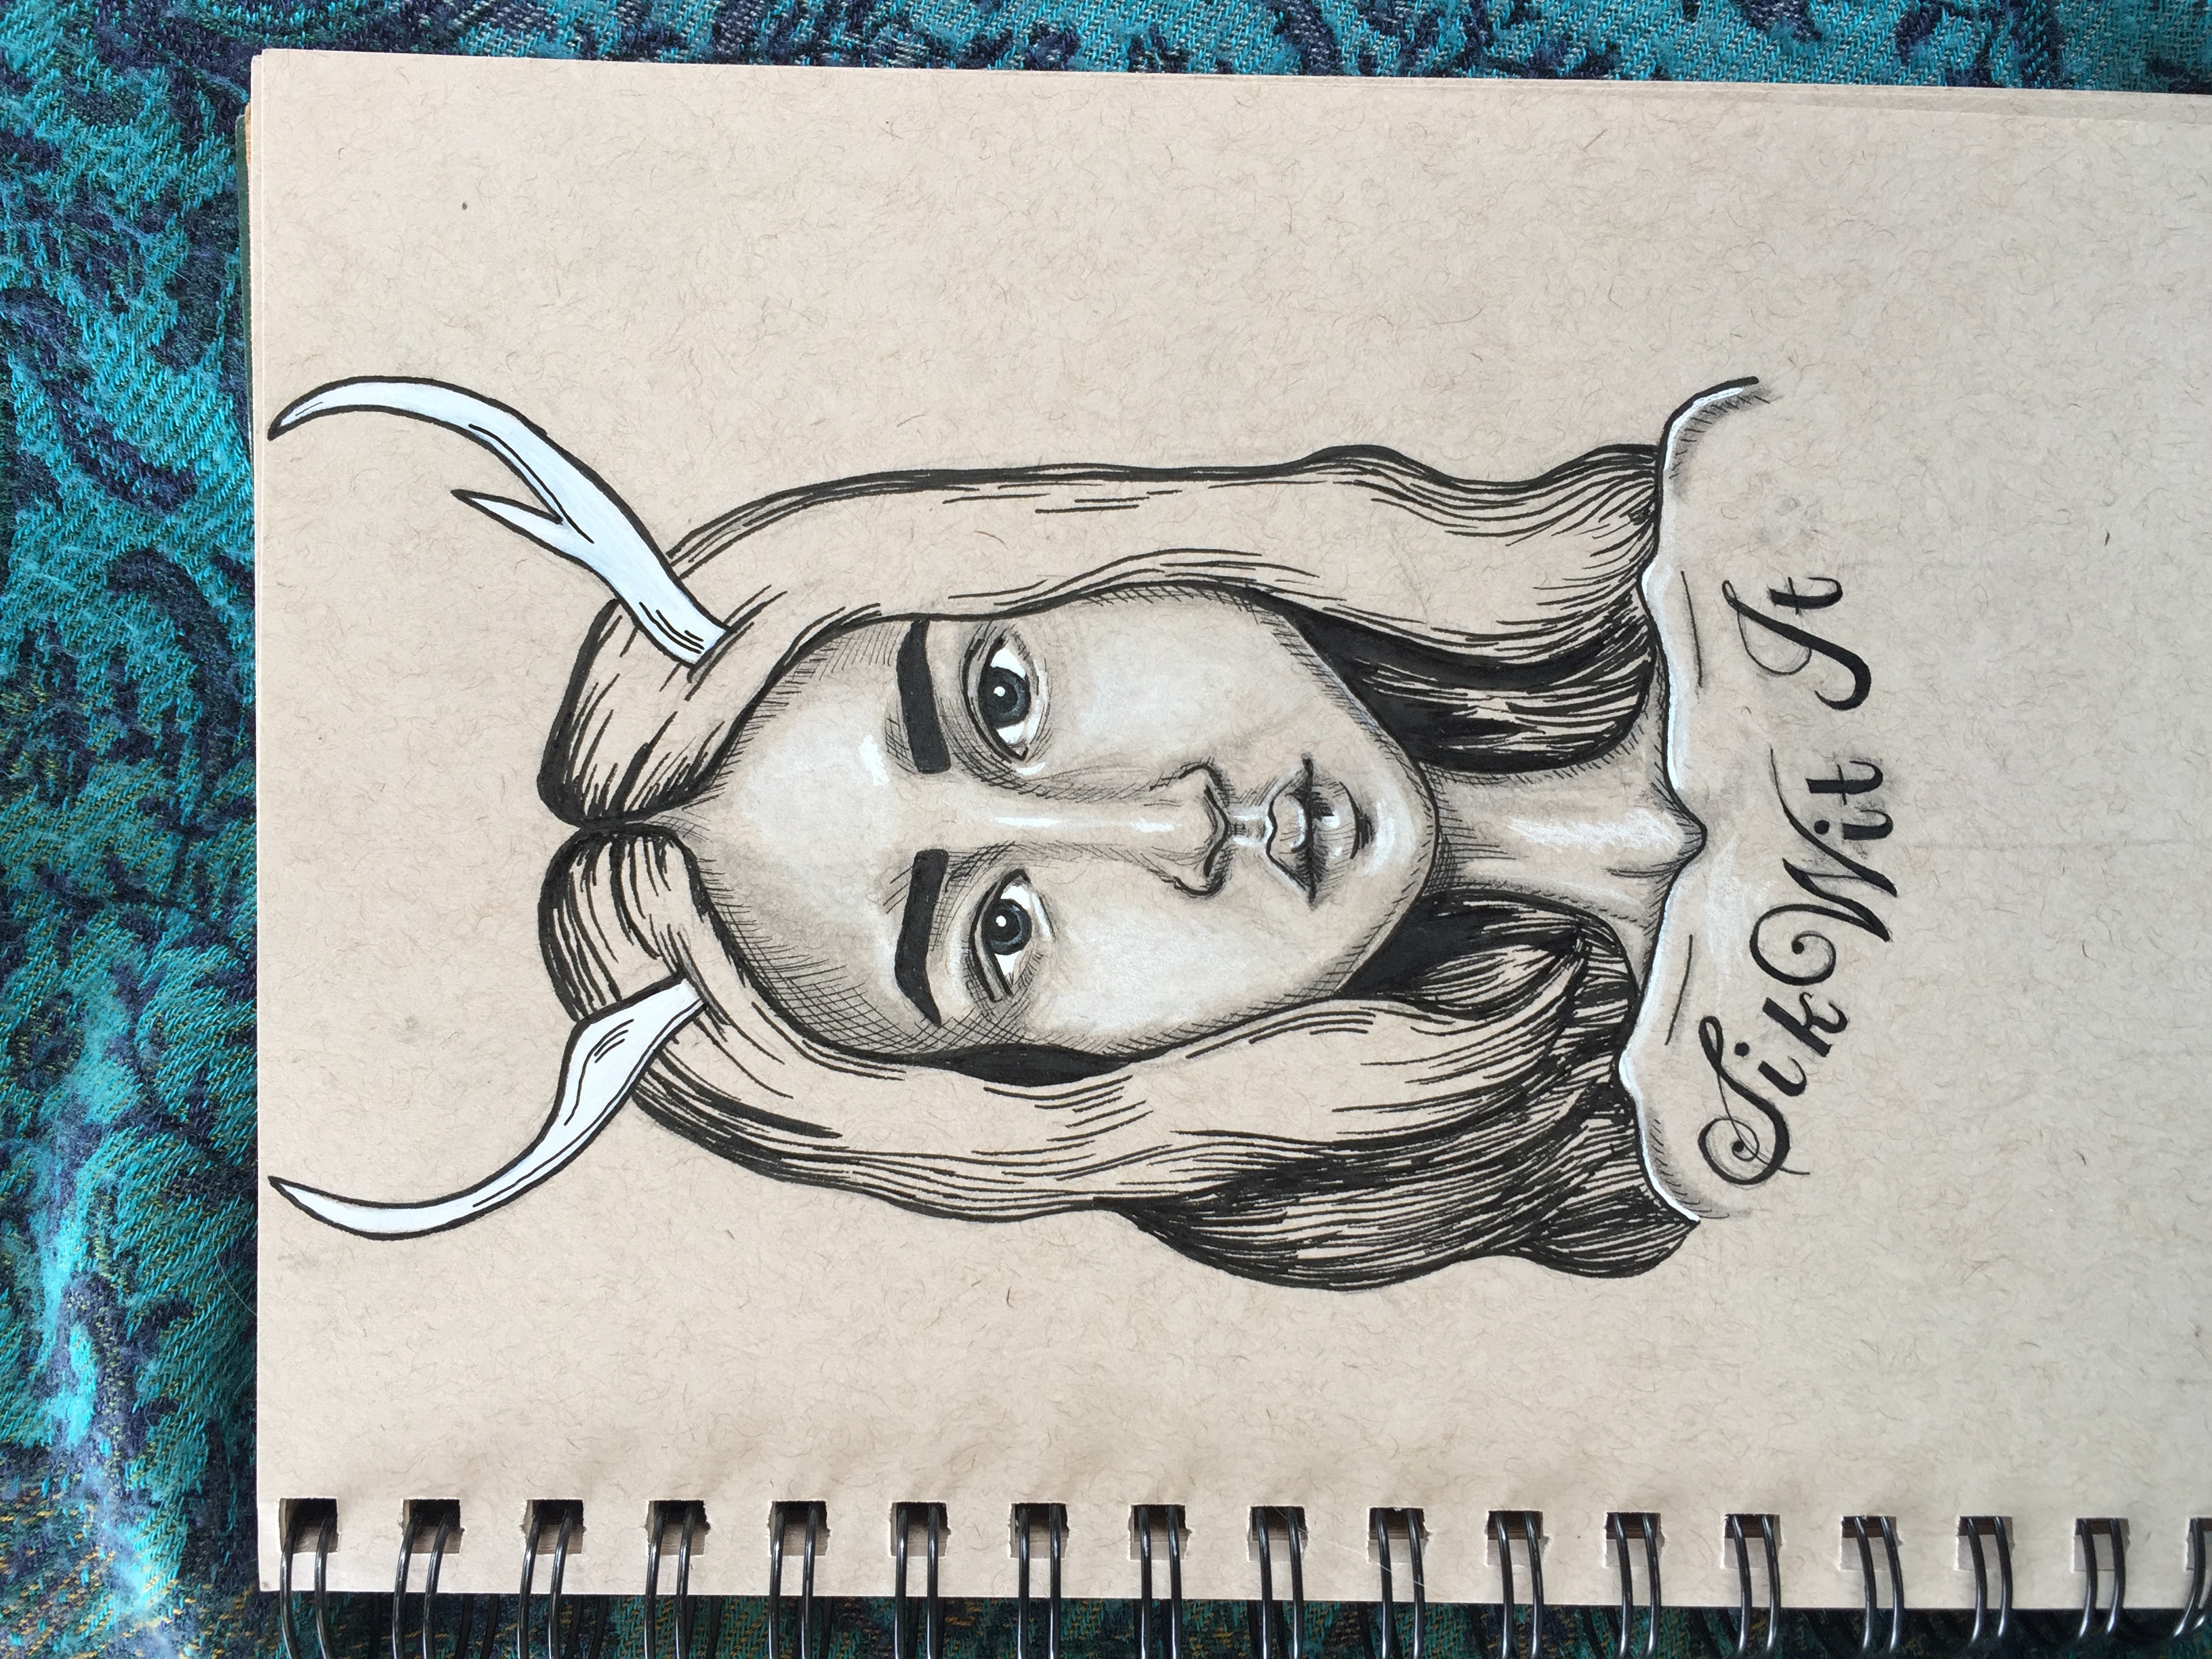 Sik Wit It